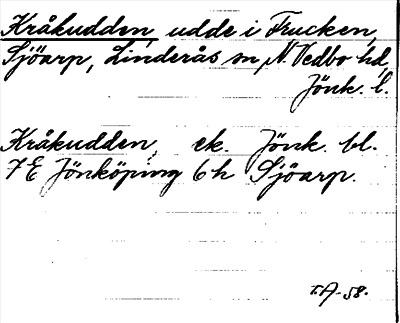 Kråkudden, udde i Frucken,
Sjöarp, Linderås sn, N. Vedbo hd,
Jönk. l.
Kråkudden, ek. Jönk. bl.
7E Jönköping 6h Sjöarp.
T.A. 58.